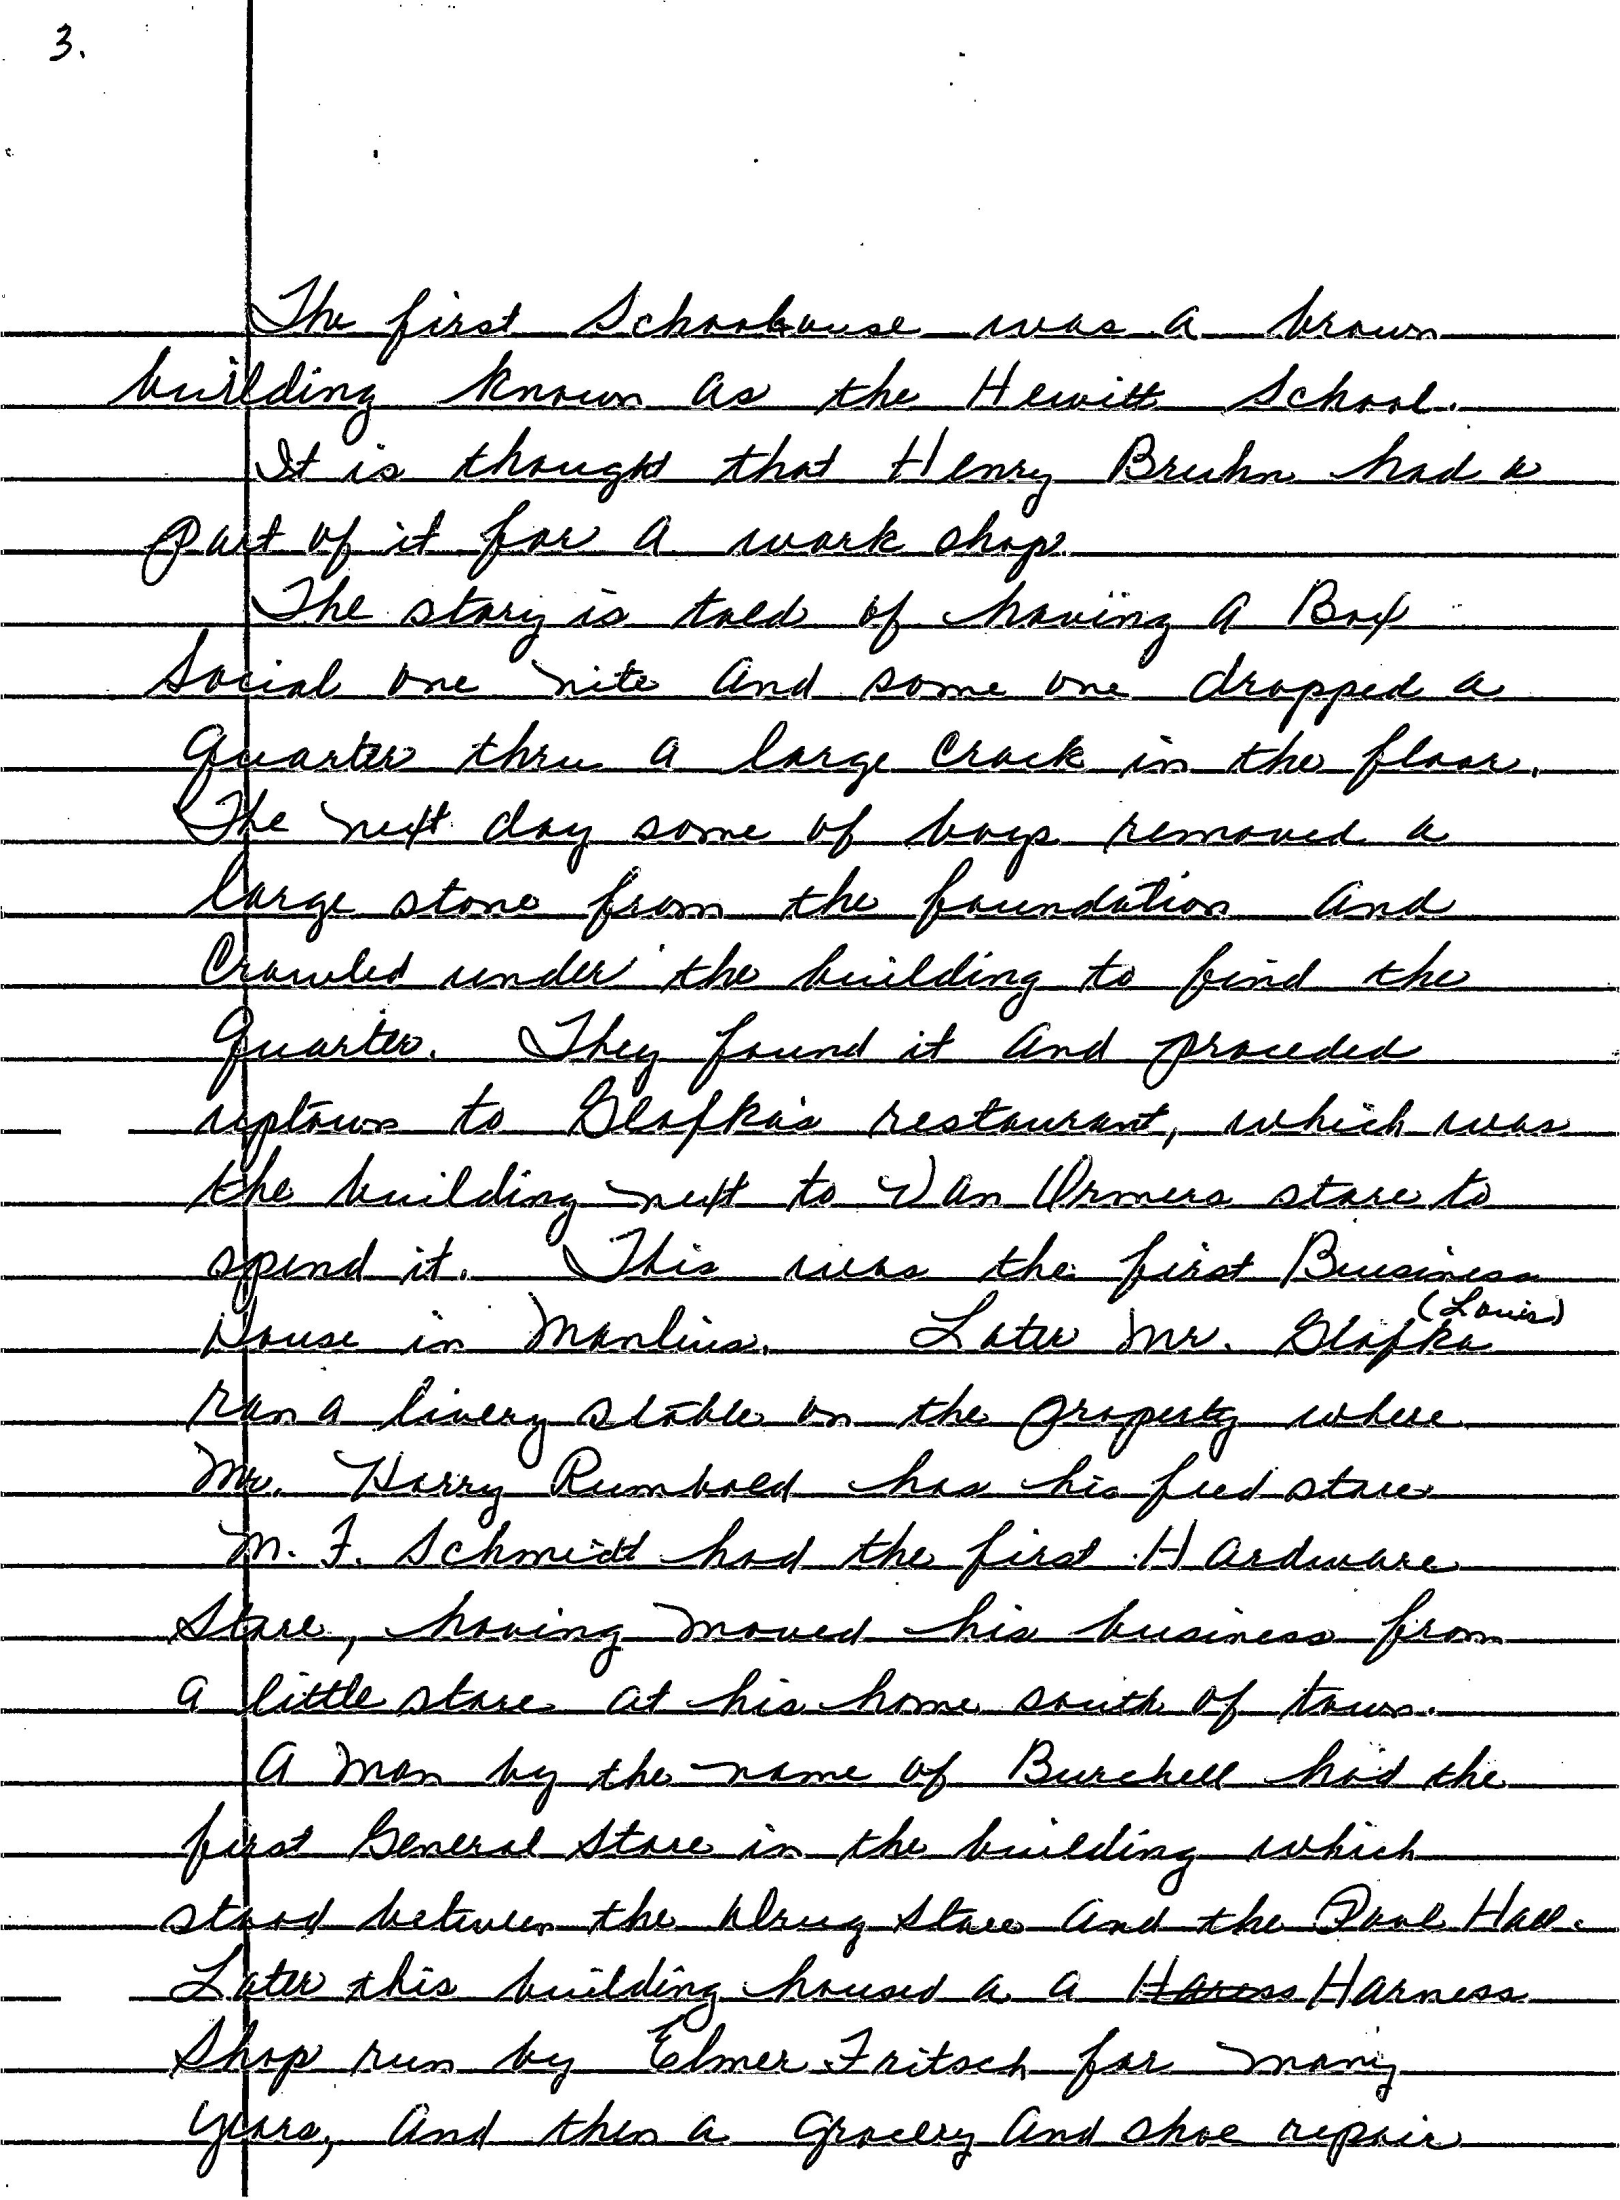 3.
The first Schoolhouse was a brown
building known as the Hewitt School.
It is thought that Henry Bruhn had a
part of it for a work shop.
The story is told of having a Box
Social one nite and some one dropped a
quarter thru a large crack in the floor.
The next day some of boys removed a
large stone from the foundation and
Crawled under the building to find the
quarter. They found it and proceded
uptown to Glafka's restaurant, which was
the building next to Van Ormers store to
spend it. This was the first Business
House in Manlius. Later Mr. Glafka (Louis)
ran a livery stable on the property where
Mr. Harry Rumbold has his feed store
M. F. Schmidt had the first Hardware
Store, having moved his business from
a little store at his home south of town.
A man by the name of Burchell had the
first General Store in the building which
stood between the Drug Store and the Pool Hall.
Later this building housed a a Haress Harness
Shop run by Elmer Fritsch for many
years, and then a grocery and shoe repair